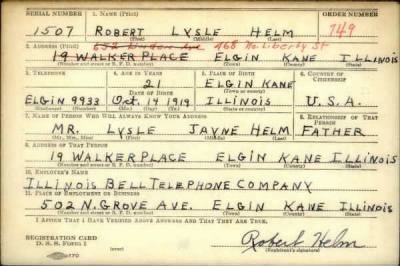 SERIAL NUMBER 1. NAME (Print) ORDER NUMBER
1507 ROBERT LYSLE HELM 749
(First) (Middle) (Last)
2. ADDRESS (Print) 468 No Liberty St
19 WALKER PLACE ELGIN KANE ILLINOIS
(Number and street or R. F. D. number) (Town) (County) (State)
3. TELEPHONE 4. AGE IN YEARS 5. PLACE OF BIRTH 6. COUNTRY OF CITIZENSHIP
21 ELGIN KANE
DATE OF BIRTH (Town or county)
ELGIN 9933 OCT. 14 1919 ILLINOIS U.S.A.
(Exchange) (Number) (Mo.) (Day) (Yr.) (State or country)
7. NAME OF PERSON WHO WILL ALWAYS KNOW YOUR ADDRESS 8. RELATIONSHIP OF THAT PERSON
MR. LYSLE JAYNE HELM FATHER
(Mr., Mrs., Miss) (First) (Middle) (Last)
9. ADDRESS OF THAT PERSON
19 WALKER PLACE ELGIN KANE ILLINOIS
(Number and street or R. F. D. number) (Town) (County) (State)
10. EMPLOYER'S NAME
ILLINOIS BELL TELEPHONE COMPANY
11. PLACE OF EMPLOYMENT OR BUSINESS
502 N. GROVE AVE. ELGIN KANE ILLINOIS
(Number and street or R. F. D. number) (Town) (County) (State)
I AFFIRM THAT I HAVE VERIFIED ABOVE ANSWERS AND THAT THEY ARE TRUE.
REGISTRATION CARD
D. S. S. FORM 1
Robert Helm
(Registrant's signature)